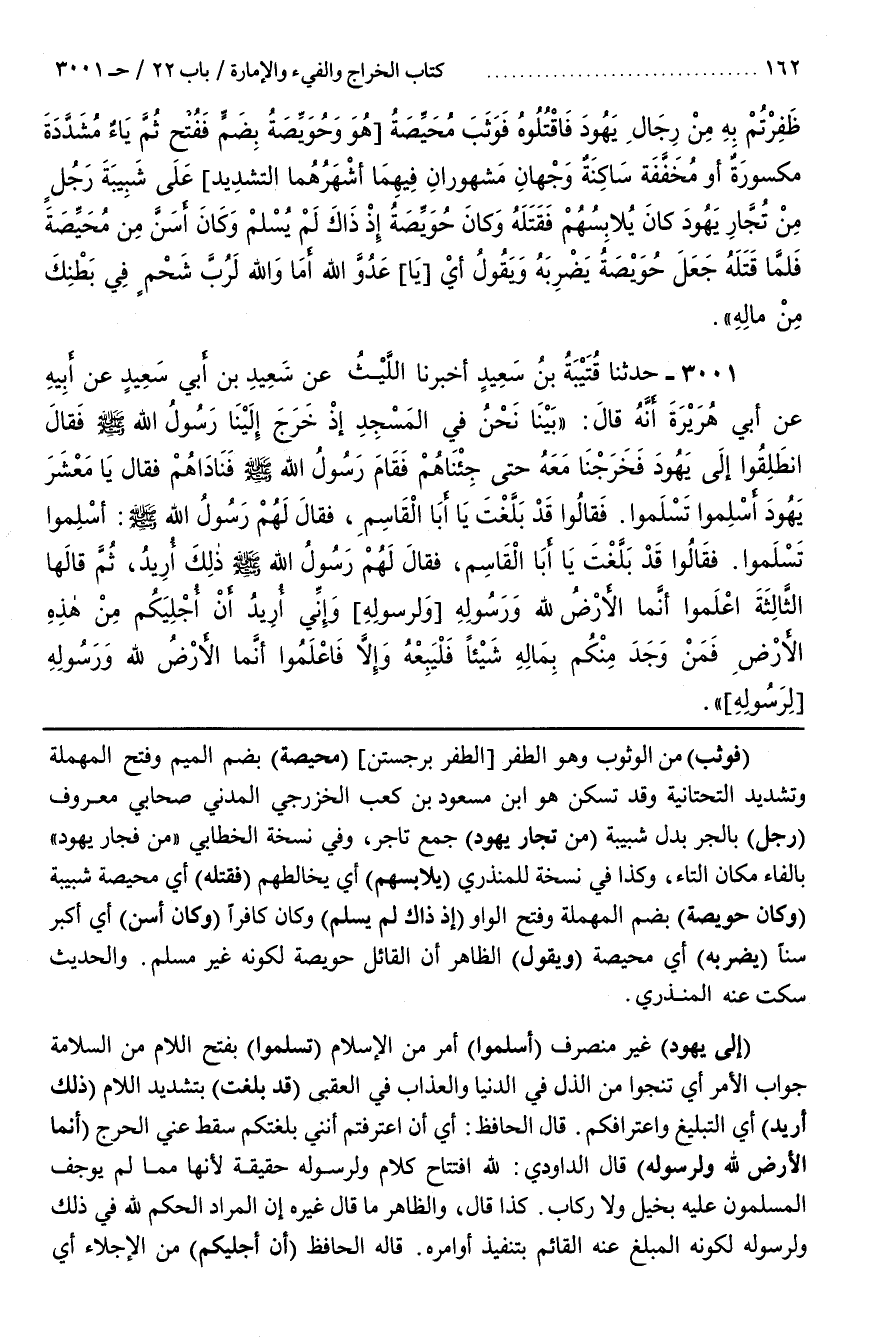 ١٦٢ ................................ كتاب الخراج والفيء والإمارة / باب ٢٢ / حـ ٣٠٠١
ظَفِرْتُمْ بِهِ مِنْ رِجَالِ يَهُودَ فَاقْتُلُوهُ فَوَثَبَ مُحَيِّصَةُ [هُوَ وَحُوَيِّصَةُ بِضَمٍّ فَفُتْحٍ ثُمَّ يَاءٌ مُشَدَّدَة
مكسورَةٌ أو مُخَفَّفَة سَاكِنَةٌ وَجْهانِ مَشهورانِ فِيهِمَا أشْهَرُهُما التشديد] عَلَى شَبِيبَةَ رَجُلٍ
مِنْ تُجَّارِ يَهُودَ كانَ يُلابِسُهُمْ فَقَتَلَهُ وَكانَ حُوَيِّصَةُ إِذْ ذَاكَ لَمْ يُسْلمْ وَكَانَ أَسَنَّ مِن مُحَيِّصَةَ
فَلمَّا قَتَلَهُ جَعَلَ حُوَيْصَةُ يَضْرِبَهُ وَيَقُولُ أيْ [يَا] عَدُوَّ الله أَمَا وَالله لَرُبَّ شَحْمٍ فِي بَطْنِكَ
مِنْ مالِهِ».
٣٠٠١ - حدثنا قُتَيْبَةُ بنُ سَعِيدٍ أخبرنا اللَّيْثُ عن سَعِيدِ بن أَبي سَعِيدٍ عن أَبِيهِ
عن أبي هُرَيْرَةَ أنَّهُ قالَ: «بَيْنَا نَحْنُ في المَسْجِدِ إذْ خَرَجَ إِلَيْنَا رَسُولُ الله ﷺ فَقالَ
انطَلِقُوا إلَى يَهُودَ فَخَرَجْنَا مَعَهُ حتى جِئْنَاهُمْ فَقَامَ رَسُولُ الله ﷺ فَنَادَاهُمْ فقال يَا مَعْشَرَ
يَهُودَ أَسْلِموا تَسْلَموا. فَقَالُوا قَدْ بَلَّغْتَ يَا أَبَا الْقَاسِمِ، فقالَ لَهُمْ رَسُولُ الله ﷺ: أسْلِموا
تَسْلَموا. فقَالُوا قَدْ بَلَّغْتَ يا أبَا الْقَاسِم، فقالَ لَهُمْ رَسُولُ الله ﷺ ذٰلِكَ أُرِيدُ، ثُمَّ قالَها
الثَّالِثَةَ اعْلَموا أنَّما الأرْضُ لله وَرَسُولِهِ [وَلرسولِهِ] وَإِنِّي أُرِيدُ أَنْ أُجْلِيَكُم مِنْ هٰذِهِ
الأرْضِ فَمَنْ وَجَدَ مِنْكُم بِمَالِهِ شَيْئاً فَلْيَبِعْهُ وَإلَّا فَاعْلَمُوا أنَّما الأرْضُ لله وَرَسُولِهِ
[لِرَسُولِهِ]».
(فوثب) من الوثوب وهو الطفر [الطفر برجستن] (محيصة) بضم الميم وفتح المهملة
وتشديد التحتانية وقد تسكن هو ابن مسعود بن كعب الخزرجي المدني صحابي معروف
(رجل) بالجر بدل شبيبة (من تجار يهود) جمع تاجر، وفي نسخة الخطابي «من فجار يهود»
بالفاء مكان التاء، وكذا في نسخة للمنذري (يلابسهم) أي يخالطهم (فقتله) أي محيصة شبيبة
(وكان حويصة) بضم المهملة وفتح الواو (إذ ذاك لم يسلم) وكان كافراً (وكان أسن) أي أكبر
سناً (يضربه) أي محيصة (ويقول) الظاهر أن القائل حويصة لكونه غير مسلم. والحديث
سكت عنه المنذري.
(إلى يهود) غير منصرف (أسلموا) أمر من الإسلام (تسلموا) بفتح اللام من السلامة
جواب الأمر أي تنجوا من الذل في الدنيا والعذاب في العقبى (قد بلغت) بتشديد اللام (ذلك
أريد) أي التبليغ واعترافكم. قال الحافظ: أي أن اعترفتم أنني بلغتكم سقط عني الحرج (أنما
الأرض لله ولرسوله) قال الداودي: لله افتتاح كلام ولرسوله حقيقة لأنها مما لم يوجف
المسلمون عليه بخيل ولا ركاب. كذا قال، والظاهر ما قال غيره إن المراد الحكم لله في ذلك
ولرسوله لكونه المبلغ عنه القائم بتنفيذ أوامره. قاله الحافظ (أن أجليكم) من الإجلاء أي